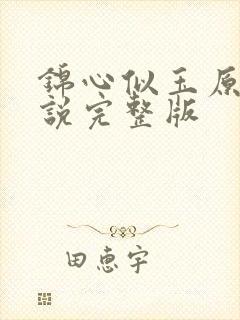 錦心似玉原
說完整版
田惠宇